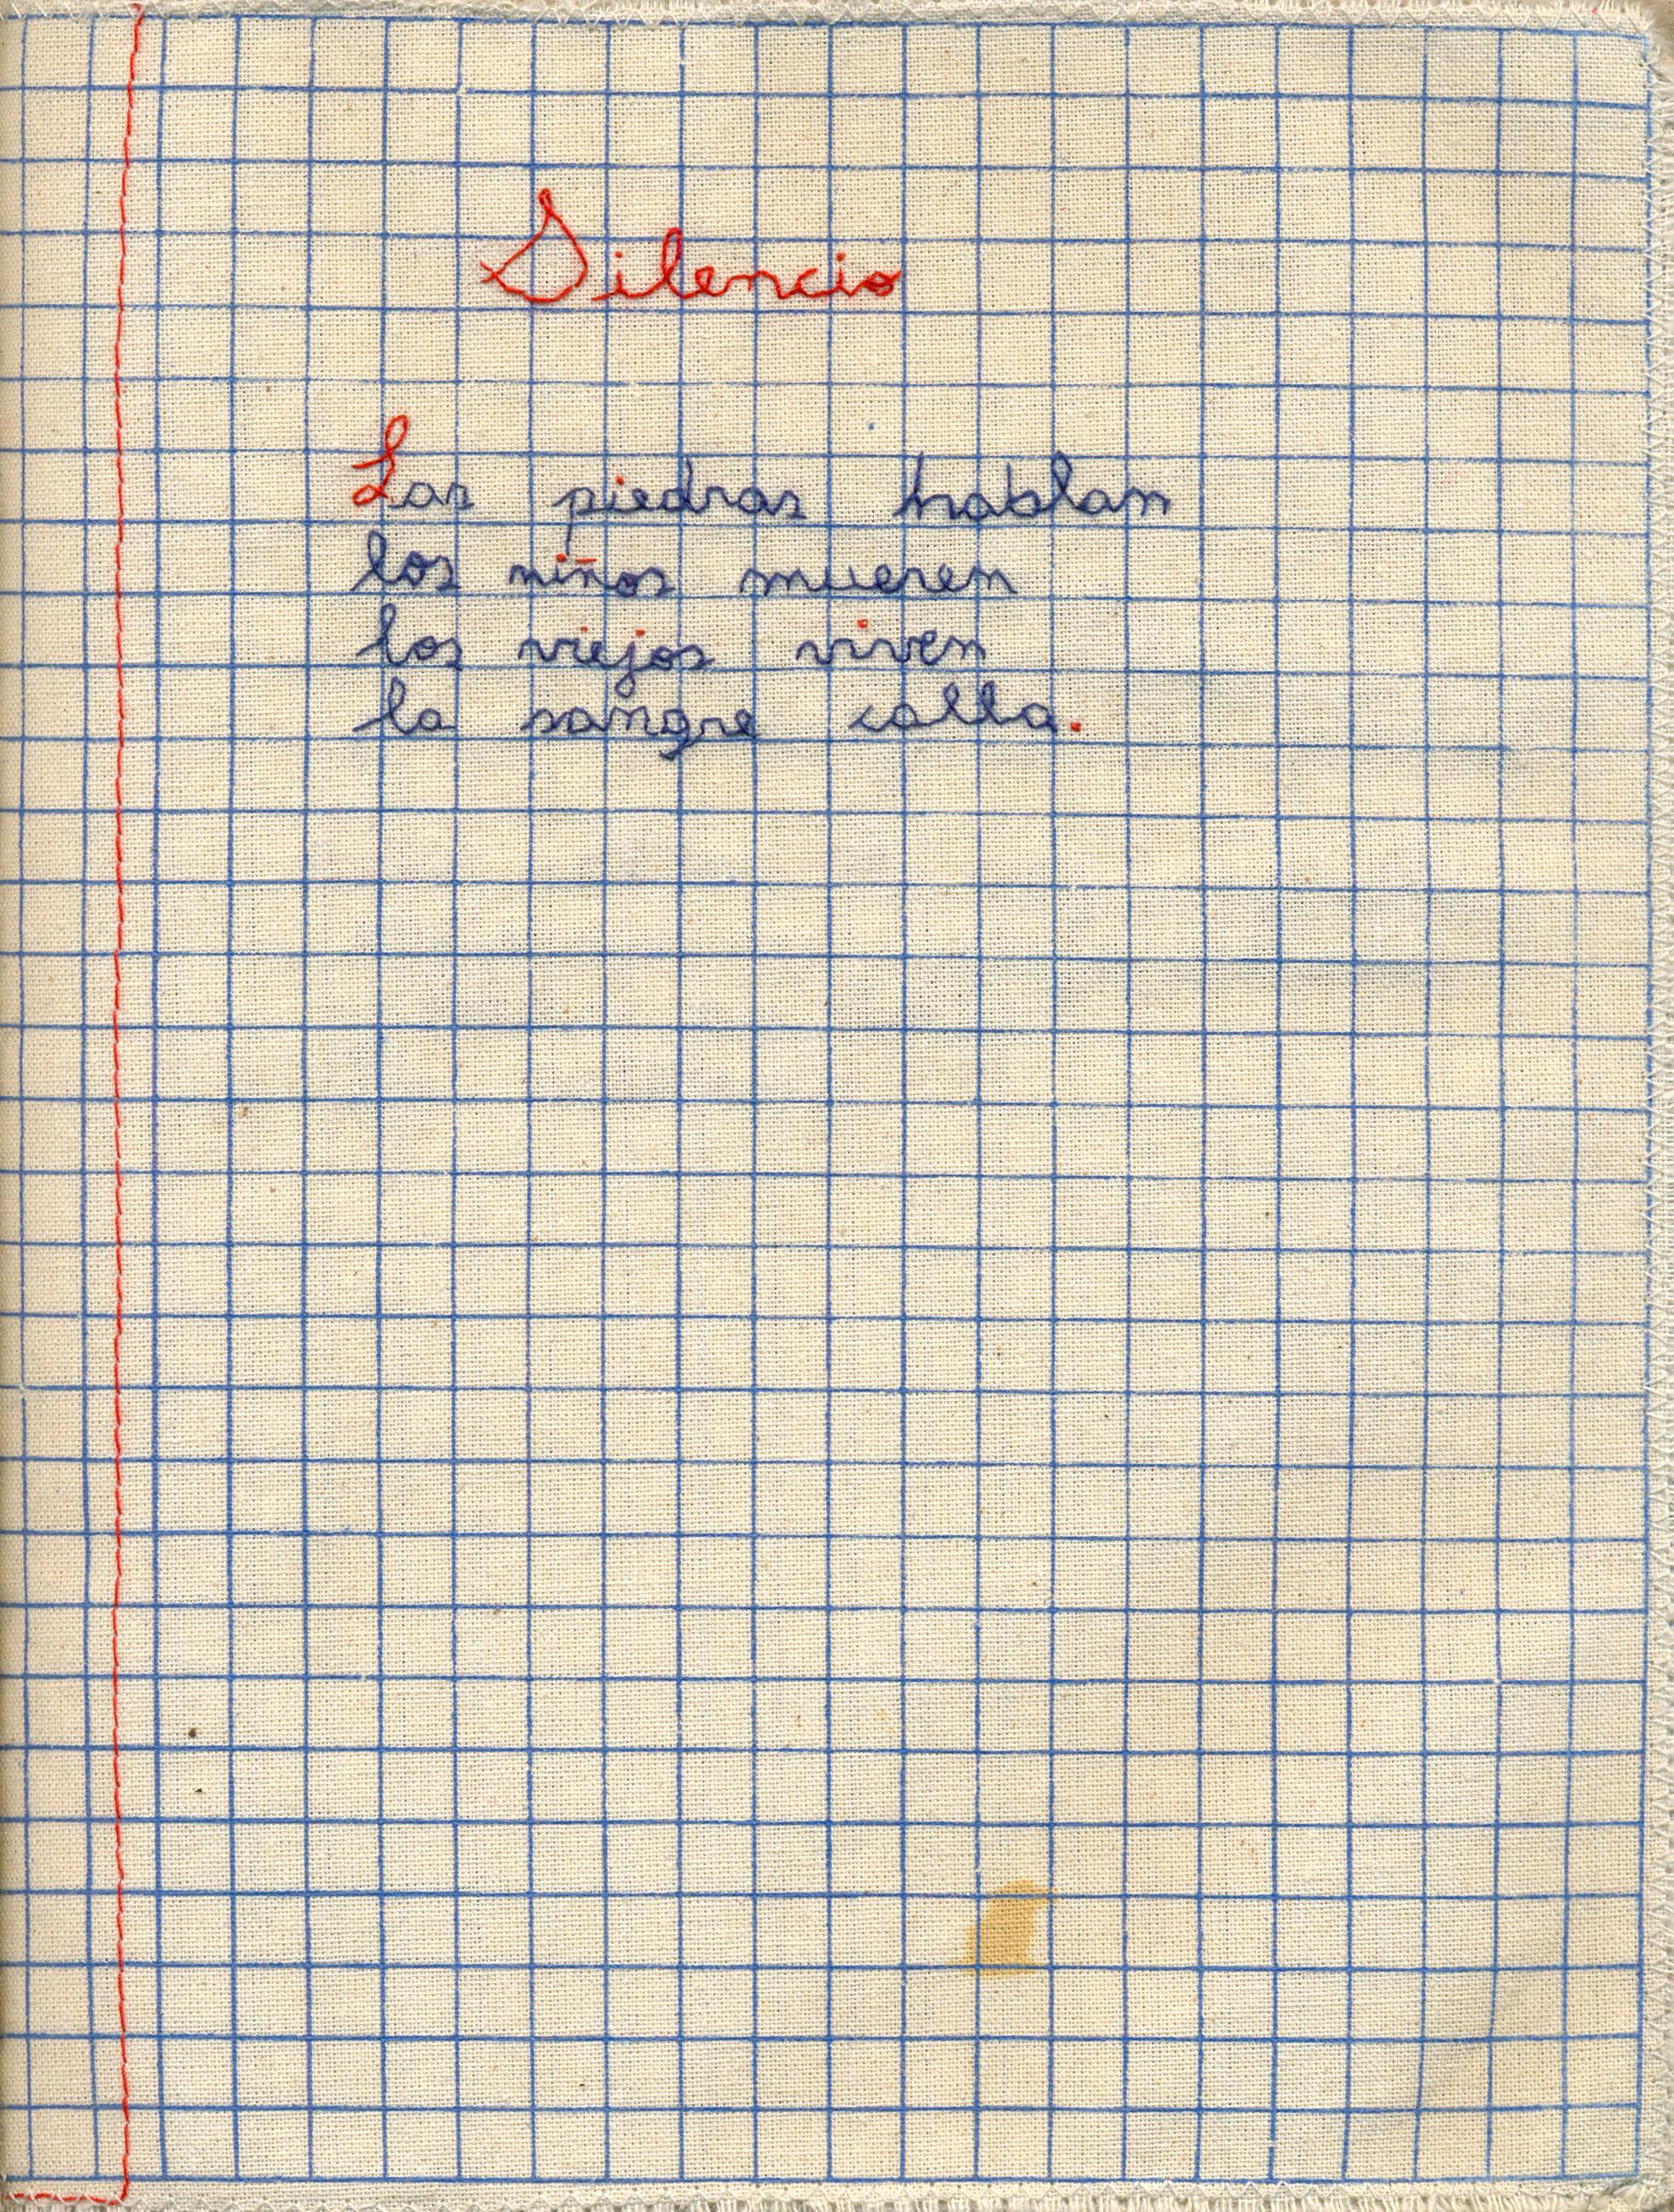 Silencio
Las piedras hablan
los niños mueren
los viejos viven
la sangre calla.